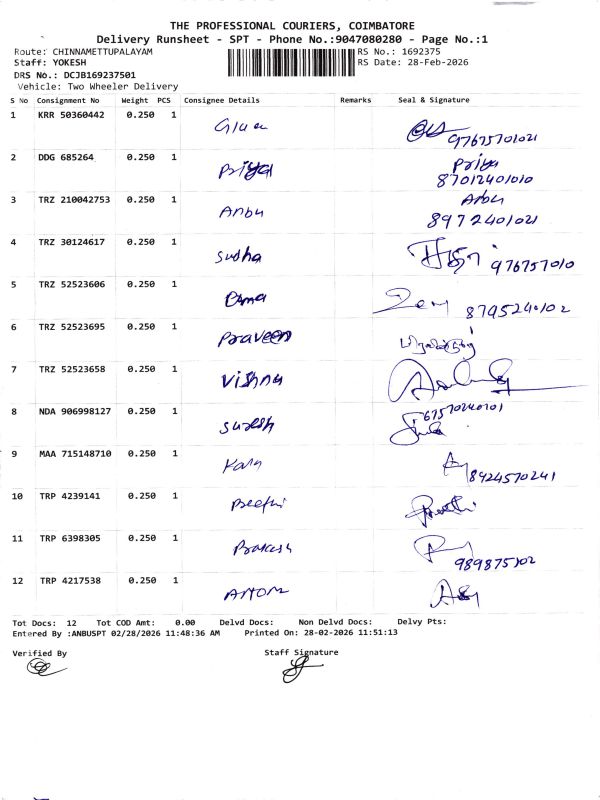 THE PROFESSIONAL COURIERS, COIMBATORE
Delivery Runsheet - SPT - Phone No.:9047080280 - Page No.:1
Route: CHINNAMETTUPALAYAM RS No.: 1692375
Staff: YOKESH RS Date: 28-Feb-2026
DRS No.: DCJB169237501
Vehicle: Two Wheeler Delivery
S No Consignment No Weight PCS Consignee Details Remarks Seal & Signature
1 KRR 50360442 0.250 1
2 DDG 685264 0.250 1 Priya Priya
87012401010
3 TRZ 210042753 0.250 1 Anbu Anbu
8972401021
4 TRZ 30124617 0.250 1 Sudha 976757010
5 TRZ 52523606 0.250 1 8795240102
6 TRZ 52523695 0.250 1 Praveen
7 TRZ 52523658 0.250 1 Vishnu
8 NDA 906998127 0.250 1 Suresh
9 MAA 715148710 0.250 1 8424570241
10 TRP 4239141 0.250 1 Preethi Preethi
11 TRP 6398305 0.250 1 Prakash
989875102
12 TRP 4217538 0.250 1
Tot Docs: 12 Tot COD Amt: 0.00 Delvd Docs: Non Delvd Docs: Delvy Pts:
Entered By :ANBUSPT 02/28/2026 11:48:36 AM Printed On: 28-02-2026 11:51:13
Verified By Staff Signature